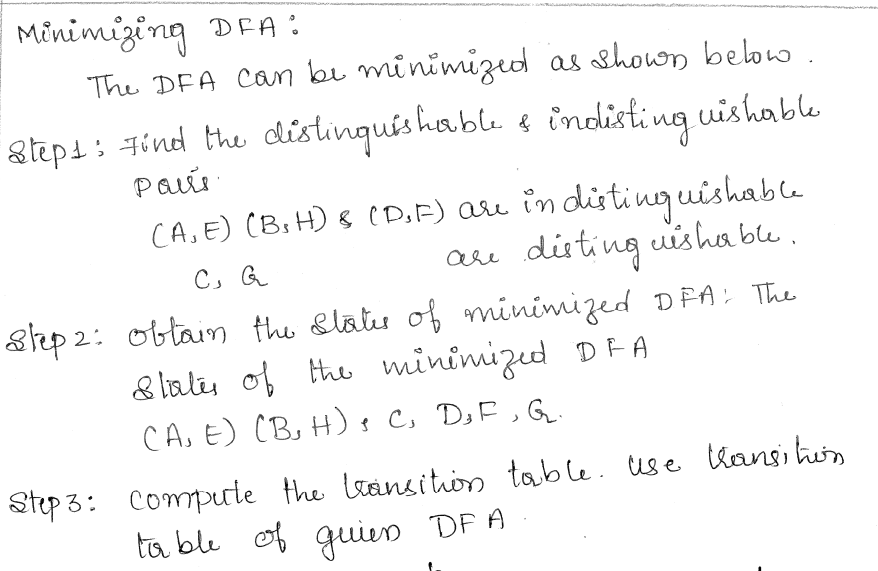 Minimizing DFA :
The DFA can be minimized as shown below .
Step1 : Find the distinguishable & indistinguishable
pairs.
(A, E) (B, H) & (D, F) are indistinguishable
C, G are distinguishable .
Step 2 : Obtain the states of minimized DFA : The
states of the minimized DFA
(A, E) (B, H) , C, D, F , G.
Step 3 : Compute the transition table. Use transition
table of given DFA .